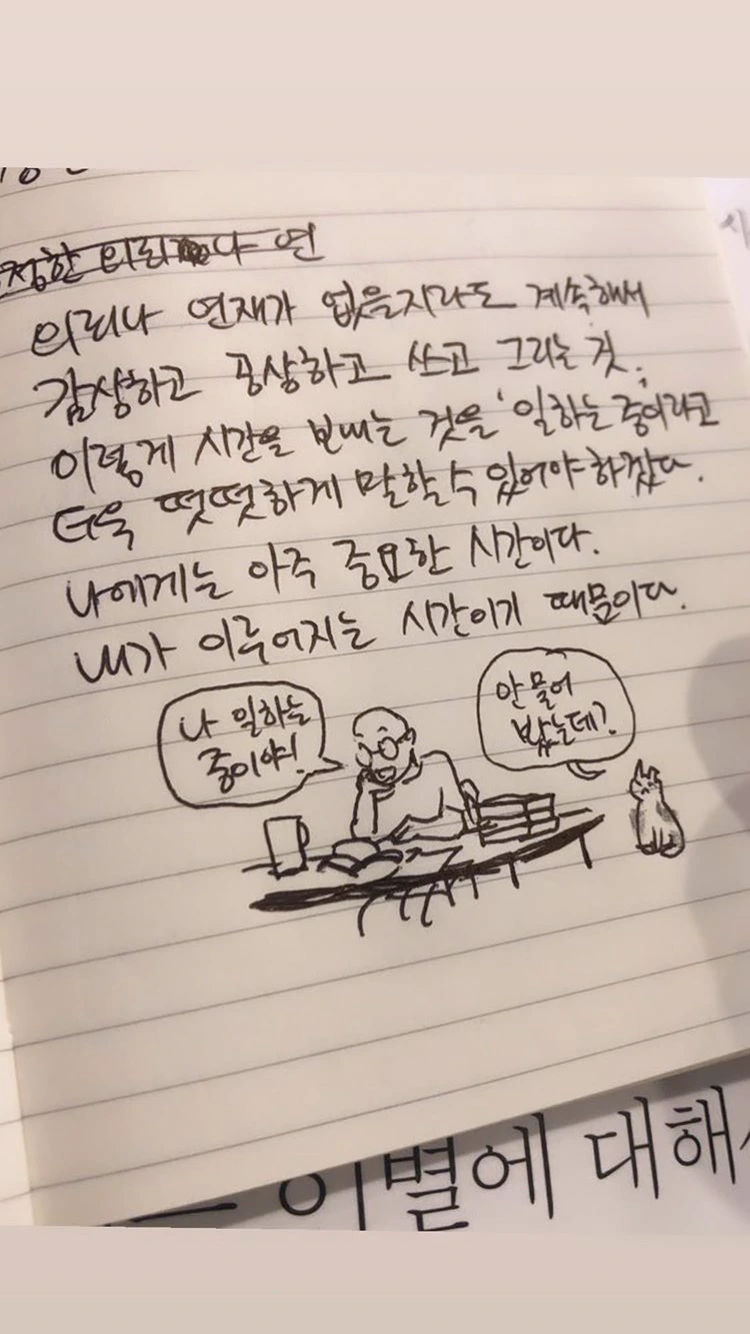 정한 의뢰나 연
의뢰나 연재가 없을지라도 계속해서
감상하고 공상하고 쓰고 그리는 것.
이렇게 시간을 보내는 것을 '일하는 중'이라고
더욱 떳떳하게 말할 수 있어야 하겠다.
나에게는 아주 중요한 시간이다.
내가 이루어지는 시간이기 때문이다.
나 일하는
중이야!
안 물어
봤는데?
이별에 대해